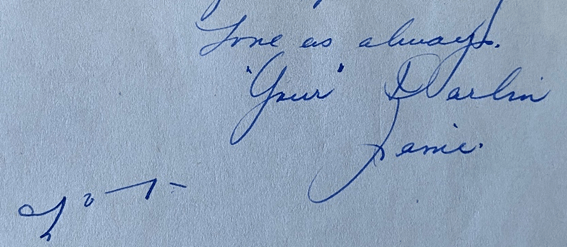 Love as always.
"Your" Darlin
Jamie.